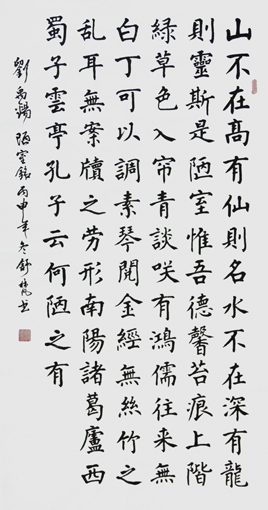 山不在髙有仙則名水不在深有龍
則靈斯是陋室惟吾德馨苔痕上階
綠草色入帘青談咲有鴻儒往來無
白丁可以調素琴閱金經無絲竹之
亂耳無案牘之勞形南陽諸葛廬西
蜀子雲亭孔子云何陋之有
劉禹錫 陋室銘 丙申年冬 舒书